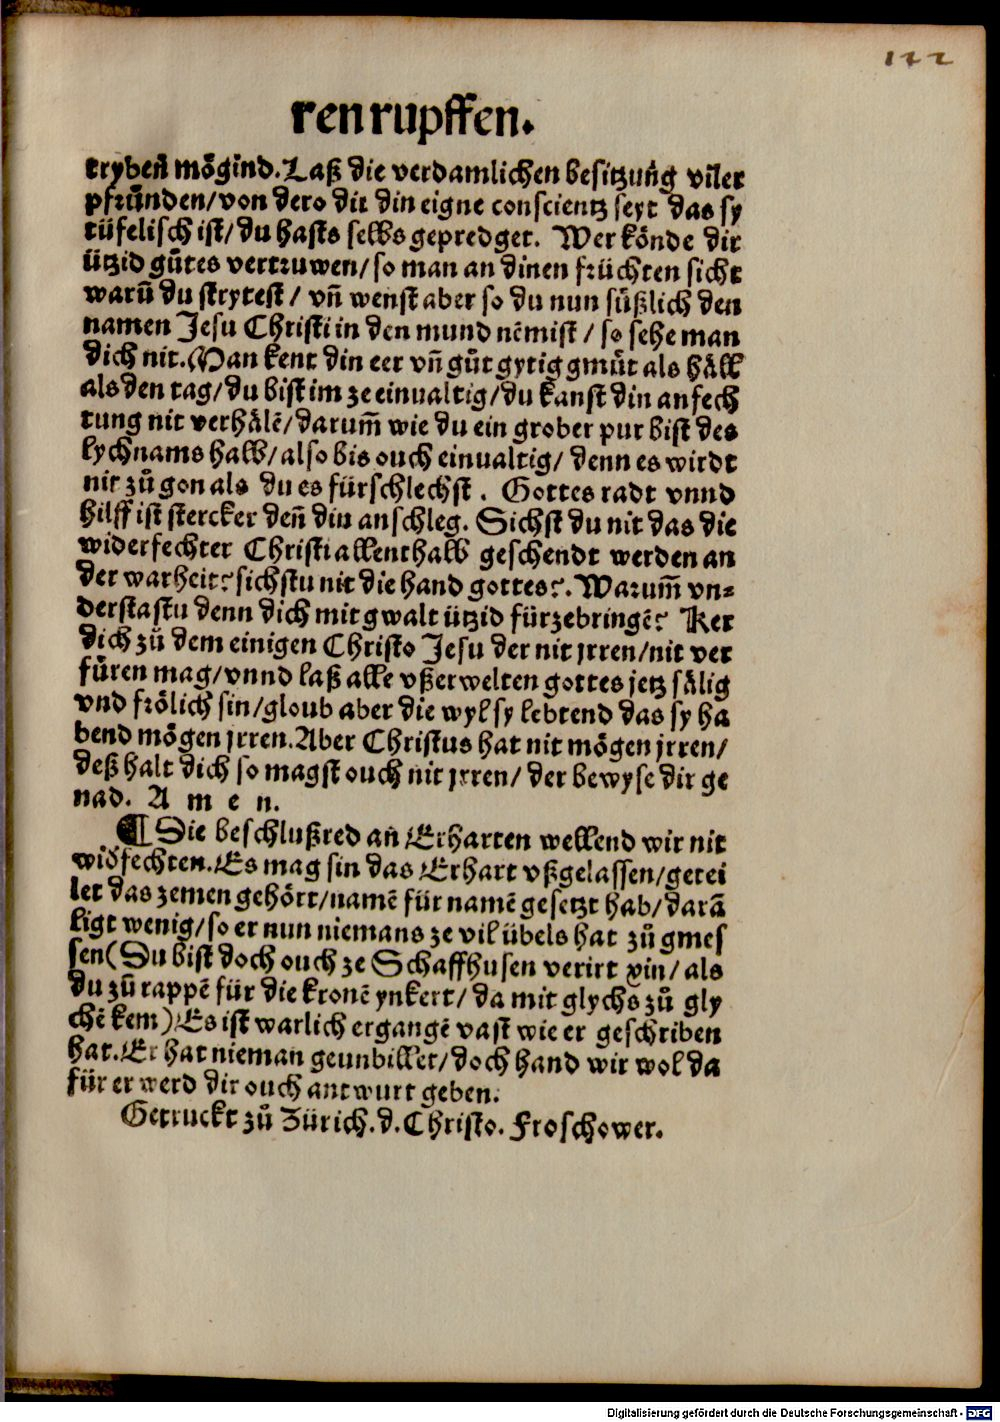 122
ren rupffen.
tryben mögind. Laß die verdamlichen besitzung viler
pfrůnden/ von dero dir din eigne conscientz seyt das sy
tüfelisch ist/ du hasts selbs gepredget. Wer könde dir
ützid gůtes vertruwen/ so man an dinen früchten sicht
warū du strytest/ vn̄ wenst aber so du nun süßlich den
namen Jesu Christi in den mund nēmist/ so sehe man
dich nit. Man kent din eer vn̄ gůt gytig gmůt als häll
als den tag/ du bist im ze einualtig/ du kanst din anfech
tung nit verhälē/ darum̄ wie du ein grober pur bist des
lychnams halb/ also bis ouch einualtig/ denn es wirdt
nit zů gon als du es fürschlechst. Gottes radt vnnd
hilff ist stercker den̄ din anschleg. Sichst du nit das die
widerfechter Christi allenthalb geschendt werden an
der warheit? sichstu nit die hand gottes?. Warum̄ vn⸗
derstastu denn dich mit gwalt ützid fürzebringē? Ker
dich zů dem einigen Christo Jesu der nit jrren/ nit ver
füren mag/ vnnd laß alle vßerwelten gottes jetz sälig
vnd frölich sin/ gloub aber die wyl sy lebtend das sy ha
bend mögen jrren. Aber Christus hat nit mögen jrren/
deß halt dich so magst ouch nit jrren/ der bewyse dir ge
nad. A m e n.
¶ Die beschlußred an Erharten wellend wir nit
wid̄fechten. Es mag sin das Erhart vßgelassen/ getei
let das zemen gehört/ namē für namē gesetzt hab/ darā
ligt wenig/ so er nun niemans ze vil übels hat zů gmes
sen (Du bist doch ouch ze Schaffhusen verirt xin/ als
du zů rappē für die kronē ynkert/ da mit glychs zů gly
chē kem) Es ist warlich ergangē vast wie er geschriben
hat. Er hat nieman geunbillet/ doch hand wir wol da
für er werd dir ouch antwurt geben.
Getruckt zů Zürich. d. Christo. Froschower.
Digitalisierung gefördert durch die Deutsche Forschungsgemeinschaft - DFG